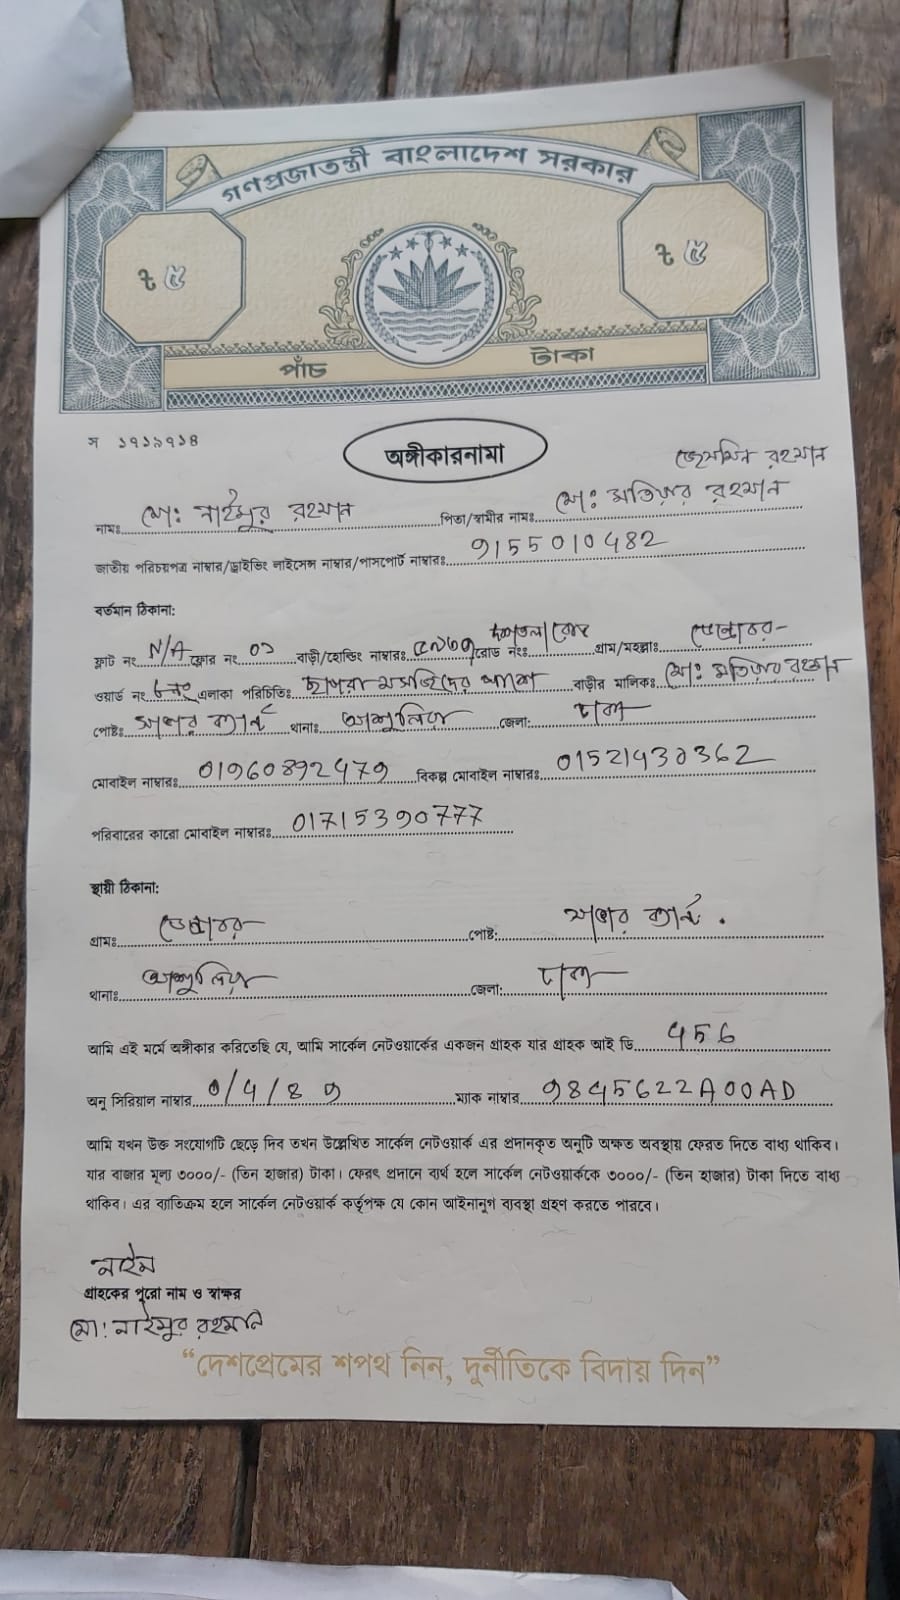 গণপ্রজাতন্ত্রী বাংলাদেশ সরকার
৳ ৫ ৳ ৫
পাঁচ টাকা
স ১৭১৯৭১৪
অঙ্গীকারনামা
জেসমিন রহমান
নামঃ মোঃ নাইমুর রহমান পিতা/স্বামীর নামঃ মোঃ মতিয়ার রহমান
জাতীয় পরিচয়পত্র নাম্বার/ড্রাইভিং লাইসেন্স নাম্বার/পাসপোর্ট নাম্বারঃ 9155010482
বর্তমান ঠিকানা:
ফ্লাট নং N/A ফ্লোর নং ০১ বাড়ী/হোল্ডিং নাম্বারঃ রোড নংঃ গ্রাম/মহল্লাঃ
ওয়ার্ড নং ৮ নং এলাকা পরিচিতিঃ ছাপরা মসজিদের পাশে বাড়ীর মালিকঃ মোঃ মতিয়ার রহমান
পোষ্টঃ থানাঃ আশুলিয়া জেলা: ঢাকা
মোবাইল নাম্বারঃ 01960892479 বিকল্প মোবাইল নাম্বারঃ 01521430362
পরিবারের কারো মোবাইল নাম্বারঃ 01715390777
স্থায়ী ঠিকানা:
গ্রামঃ পোষ্ট:
থানাঃ আশুলিয়া জেলা: ঢাকা
আমি এই মর্মে অঙ্গীকার করিতেছি যে, আমি সার্কেল নেটওয়ার্কের একজন গ্রাহক যার গ্রাহক আই ডি 456
অনু সিরিয়াল নাম্বার ম্যাক নাম্বার 9845622A00AD
আমি যখন উক্ত সংযোগটি ছেড়ে দিব তখন উল্লেখিত সার্কেল নেটওয়ার্ক এর প্রদানকৃত অনুটি অক্ষত অবস্থায় ফেরত দিতে বাধ্য থাকিব।
যার বাজার মূল্য ৩০০০/- (তিন হাজার) টাকা। ফেরৎ প্রদানে ব্যর্থ হলে সার্কেল নেটওয়ার্ককে ৩০০০/- (তিন হাজার) টাকা দিতে বাধ্য
থাকিব। এর ব্যতিক্রম হলে সার্কেল নেটওয়ার্ক কর্তৃপক্ষ যে কোন আইনানুগ ব্যবস্থা গ্রহণ করতে পারবে।
নাইম
গ্রাহকের পুরো নাম ও স্বাক্ষর
মো: নাইমুর রহমান
“দেশপ্রেমের শপথ নিন, দুর্নীতিকে বিদায় দিন”